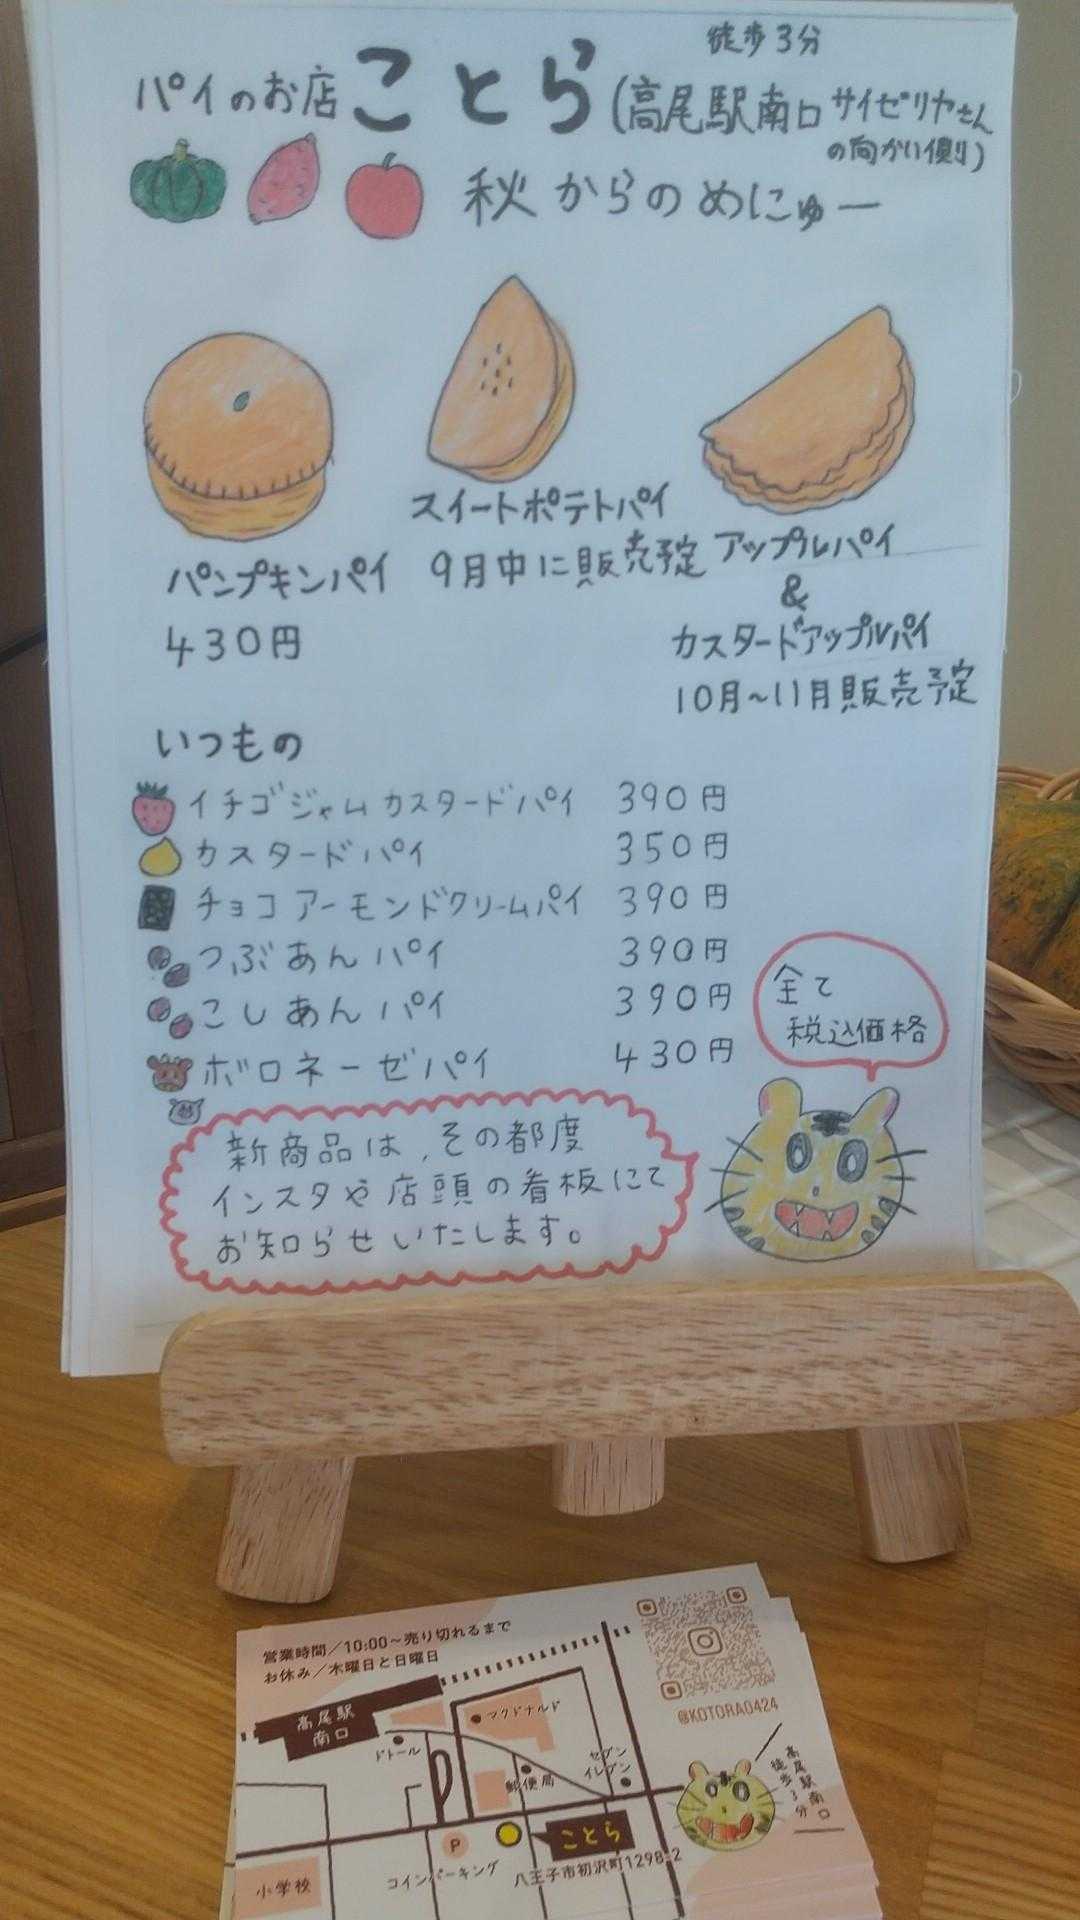 徒歩3分
パイのお店 ことら (高尾駅南口 サイゼリヤさん
の向かい側)
秋からのめにゅー
スイートポテトパイ
9月中に販売予定
パンプキンパイ
430円
アップルパイ
&
カスタードアップルパイ
10月~11月販売予定
いつもの
イチゴジャムカスタードパイ 390円
カスタードパイ 350円
チョコアーモンドクリームパイ 390円
つぶあんパイ 390円
こしあんパイ 390円
ボロネーゼパイ 430円
全て
税込価格
新商品は、その都度
インスタや店頭の看板にて
お知らせいたします。
営業時間/10:00~売り切れるまで
お休み/木曜日と日曜日
高尾駅
南口
マクドナルド
ドトール
郵便局
セブン
イレブン
@KOTORA0424
高尾駅南口
徒歩3分
P
コインパーキング
ことら
八王子市初沢町1298-2
小学校